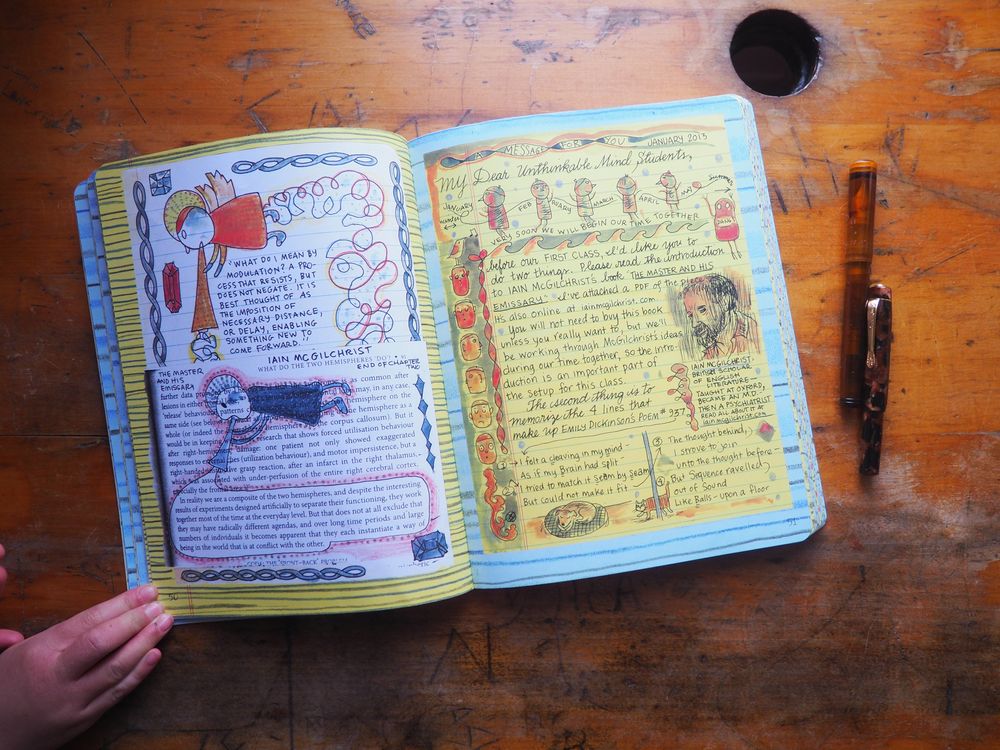 "WHAT DO I MEAN BY
MODULATION? A PRO-
CESS THAT RESISTS, BUT
DOES NOT NEGATE. IT IS
BEST THOUGHT OF AS
THE IMPOSITION OF
NECESSARY DISTANCE,
OR DELAY, ENABLING
SOMETHING NEW TO
COME FORWARD."
IAIN MCGILCHRIST
END OF CHAPTER
TWO
WHAT DO THE TWO HEMISPHERES 'DO'?
THE MASTER
AND HIS
EMISSARY
as common after
further data
may, in any case,
lesions in either
on the
'release' behaviou
hemisphere as a
same side (see be
corpus callosum). But it
whole (or indeed
research that shows forced utilisation behaviour
would be in keep
damage: one patient not only showed exaggerated
after right-hemis
responses to
(utilization behaviour), and motor impersistence, but a
right-handed
grasp reaction, after an infarct in the right thalamus,
which was associated with under-perfusion of the entire right cerebral cortex,
especially the fron
In reality we are a composite of the two hemispheres, and despite the interesting
results of experiments designed artificially to separate their functioning, they work
together most of the time at the everyday level. But that does not at all exclude that
they may have radically different agendas, and over long time periods and large
numbers of individuals it becomes apparent that they each instantiate a way of
being in the world that is at conflict with the other.
50
A MESSAGE FOR YOU JANUARY 2013
My Dear Unthinkable Mind Students,
JANUARY FEBRUARY MARCH APRIL MAY SUMMER
VERY SOON WE WILL BEGIN OUR TIME TOGETHER
Before our FIRST CLASS, I'd like you to
do two things. Please read the introduction
to IAIN MCGILCHRIST'S book THE MASTER AND HIS
EMISSARY. I've attached a PDF of the piece.
It's also online at iainmcgilchrist.com.
You will not need to buy this book
unless you really want to, but we'll
be working through McGilchrist's ideas
during our time together, so the intro-
duction is an important part of
the setup for this class.
The second thing is to
memorize the 4 lines that
make up EMILY DICKINSON'S POEM # 937
IAIN MCGILCHRIST-
BRITISH SCHOLAR
OF ENGLISH
LITERATURE-
TAUGHT AT OXFORD,
BECAME AN M.D.
THEN A PSYCHIATRIST
READ ALL ABOUT IT AT
iainmcgilchrist.com
I felt a cleaving in my mind-
As if my Brain had split-
I tried to match it seam by seam
But could not make it fit-
The thought behind,
I strove to join
unto the thought before-
But Sequence ravelled
out of Sound
Like Balls-upon a floor
51